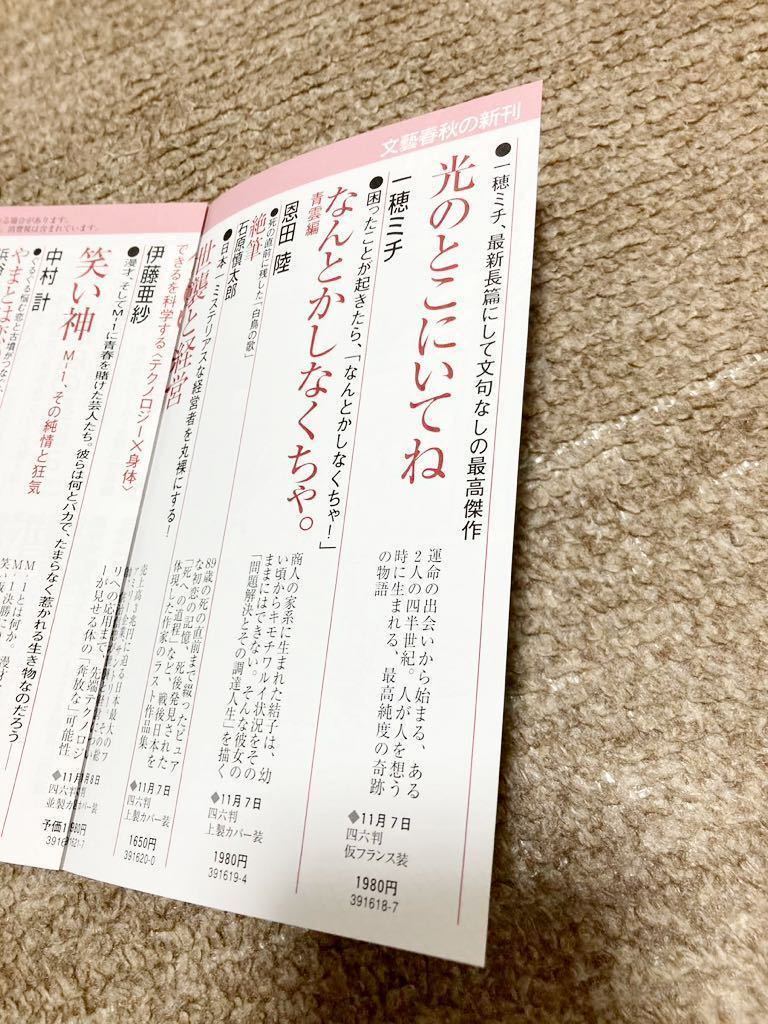 文藝春秋の新刊
●一穂ミチ、最新長篇にして文句なしの最高傑作
光のとこにいてね
一穂ミチ
運命の出会いから始まる、ある
2人の四半世紀。人が人を想う
時に生まれる、最高純度の奇跡
の物語
◆11月7日
四六判
仮フランス装
1980円
391618-7
●困ったことが起きたら、「なんとかしなくちゃ!」
なんとかしなくちゃ。
青雲編
恩田 陸
商人の家系に生まれた結子は、幼
い頃からキモチワルイ状況をその
ままにはできない。そんな彼女の
「問題解決とその調達人生」を描く
◆11月7日
四六判
上製カバー装
1980円
391619-4
●死の直前に残した「白鳥の歌」
絶筆
石原慎太郎
89歳の死の直前まで綴ったピュア
な初恋の記憶、死後発見された
「死への道程」など、戦後日本を
体現した作家のラスト作品集
◆11月7日
四六判
上製カバー装
1650円
391620-0
●日本一ミステリアスな経営者を丸裸にする!
世襲と経営
売上高3兆円に迫る日本最大のフ
できるを科学する〈テクノロジー×身体〉
伊藤亜紗
リへの応用まで、先端テクノロジ
ーが見せる体の「奔放な」可能性
◆11月8日
四六判
並製カバー装
●漫才、そしてM-1に青春を賭けた芸人たち。彼らは何とバカで、たまらなく惹かれる生き物なのだろう――
笑い神
M-1、その純情と狂気
中村 計
M-1とは何か。
●ぐるぐる悩む恋と古墳がつな
やまとは